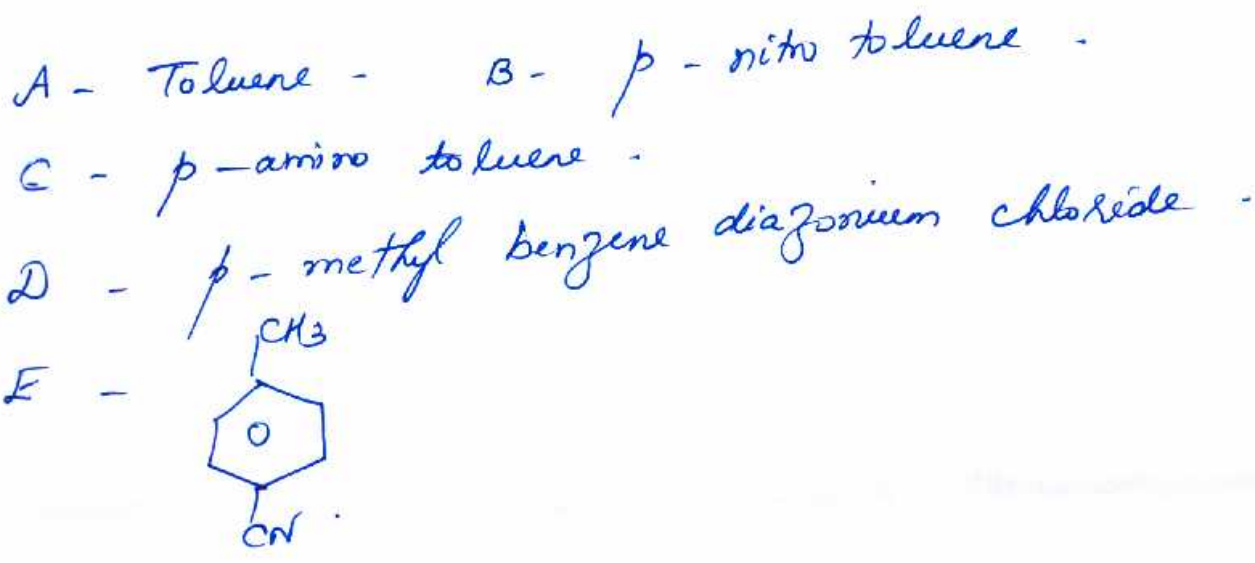 A - Toluene - B - p - nitro toluene .
C - p - amino toluene .
D - p - methyl benzene diazonium chloride .
CH3
E -
CN .